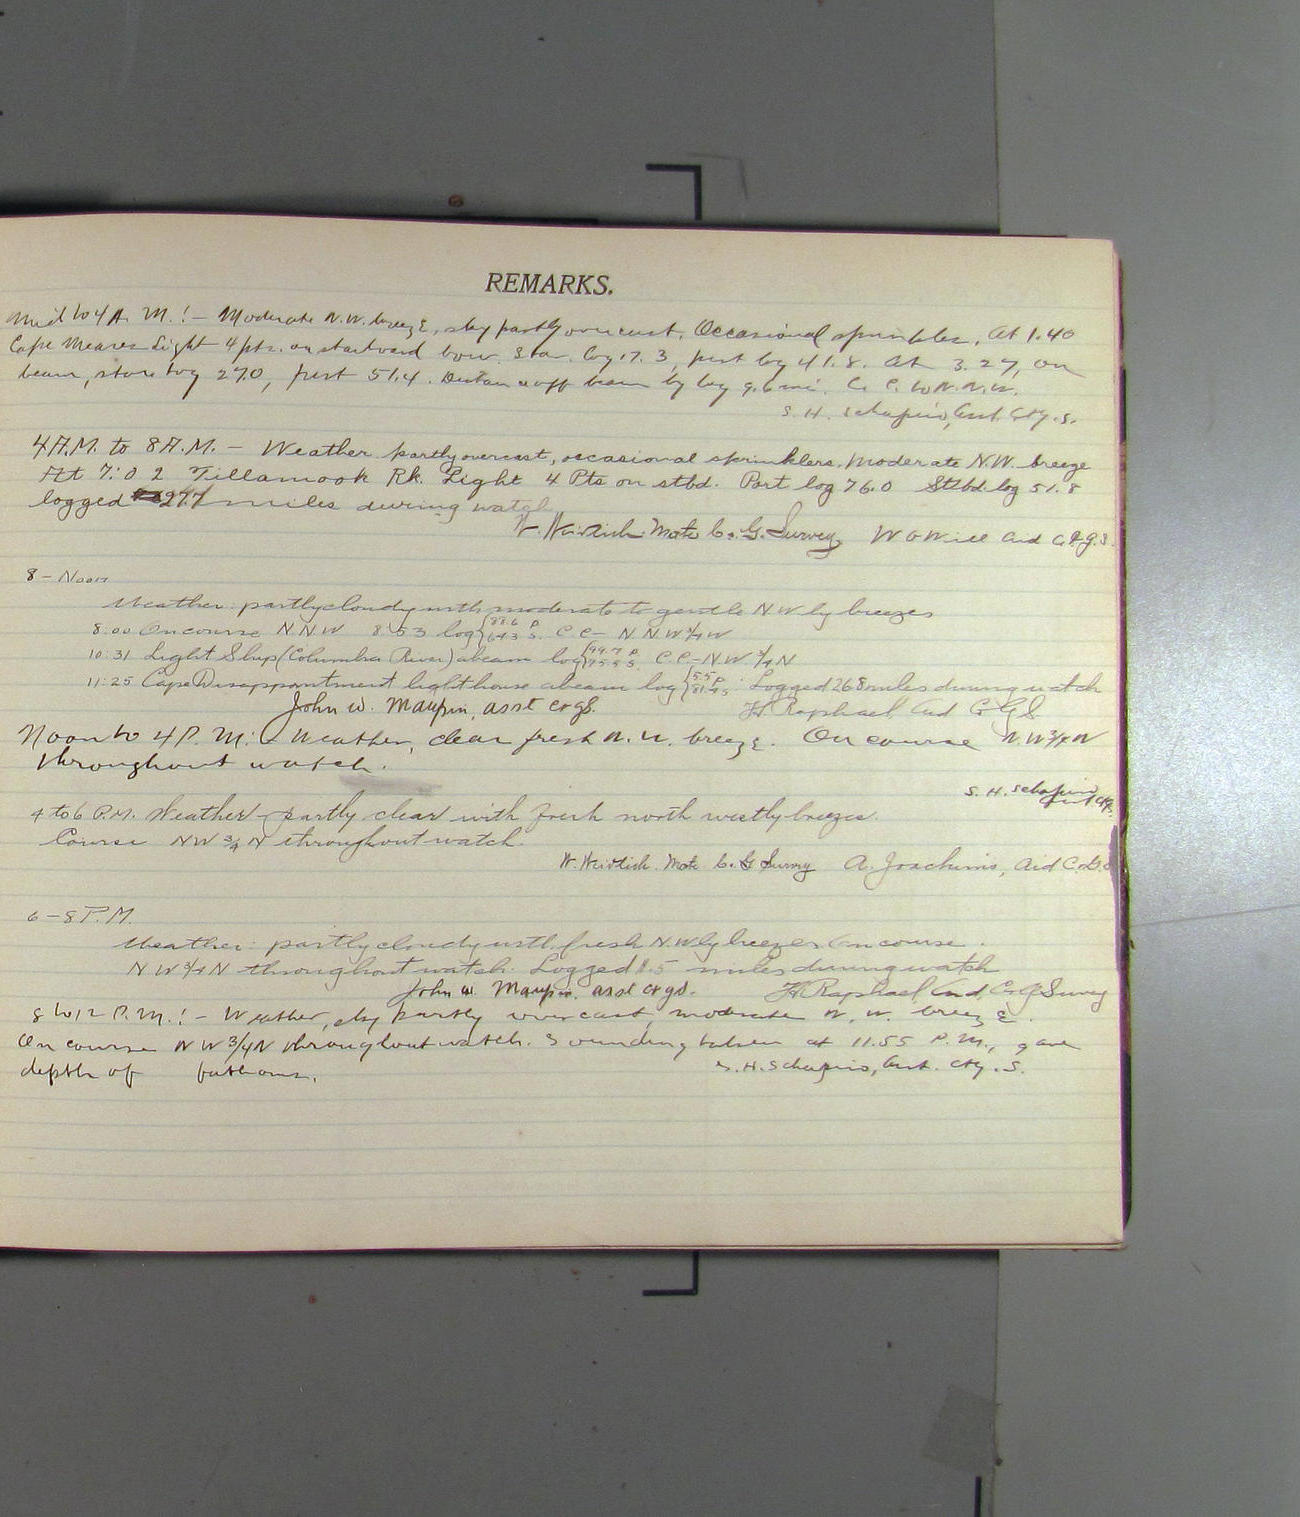 REMARKS.
Mid to 4 A. M.:- Moderate N.W. breeze, sky partly overcast. Occasional sprinkles. At 1.40
Cape Meares Light 4 pts. on starboard bow. Star. log 17.3, port log 41.8. At 3.27, on
beam, star. log 27.0, port 51.4. Distance off beam by log 9.6 mi. C. C. to N.N.W.
S. H. Schapiro, Asst. C+G. S.
4 A.M. to 8 A.M. - Weather partly overcast, occasional sprinklers. Moderate N.W. breeze
At 7:02 Tillamook Rk. Light 4 Pts on stbd. Port log 76.0 Stbd. log 51.8
logged 27.7 miles during watch
W. Weidlich. Mate C. G. Survey W O Will Aid C.&G.S.
8 - Noon
Weather: partly cloudy with moderate to gentle NW'ly breezes
8:00 On course N.N.W 8:53 log {88.6 P. 64.3 S. C C - N.N.W 3/4 W
10:31 Light Ship (Columbia River) abeam log {99.7 P. 75.5 S. C.C. - NW 3/4 N
11:25 Cape Disappointment lighthouse abeam log {5.5 P. 81.4 S. Logged 26.8 miles during watch
John W. Maupin, asst C+GS. H Raphael, Aid C+GS
Noon to 4 P. M. - Weather, clear fresh N. W. breeze. On course N.W 3/4 N
throughout watch.
S. H. Schapiro
4 to 6 P.M. Weather - partly clear with fresh north westly breezes.
Course NW 3/4 N throughout watch.
W. Weidlich. Mate C. G Survey A. Joachims, Aid C.&G.S
6 - 8 P.M.
Weather: partly cloudy with fresh N.W'ly breezes. On course
NW 3/4 N throughout watch. Logged 11.5 miles during watch
John W. Maupin. asst C+GS. H Raphael, Aid, C. G Survey
8 to 12 P.M.:- Weather, sky partly overcast, moderate N. W. breeze.
On course NW 3/4 N throughout watch. Sounding taken at 11.55 P.M., gave
depth of fathoms. S. H. Schapiro, Asst. C+G. S.